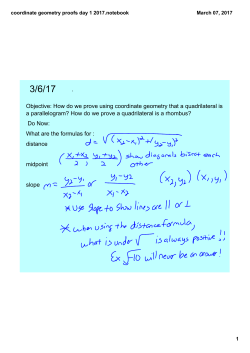 coordinate geometry proofs day 1 2017.notebook
March 07, 2017
3/6/17
Objective: How do we prove using coordinate geometry that a quadrilateral is
a parallelogram? How do we prove a quadrilateral is a rhombus?
Do Now:
What are the formulas for :
distance d = √(x₂-x₁)² + (y₂-y₁)²
midpoint (x₁+x₂/2, y₁+y₂/2) show diagonals bisect each
other
slope m = y₂-y₁/x₂-x₁ or y₁-y₂/x₁-x₂ (x₂,y₂) (x₁,y₁)
*Use slope to show lines are || or ⊥
*when using the distance formula,
what is under √ is always positive!!
Ex √-10 will never be an answer!
1